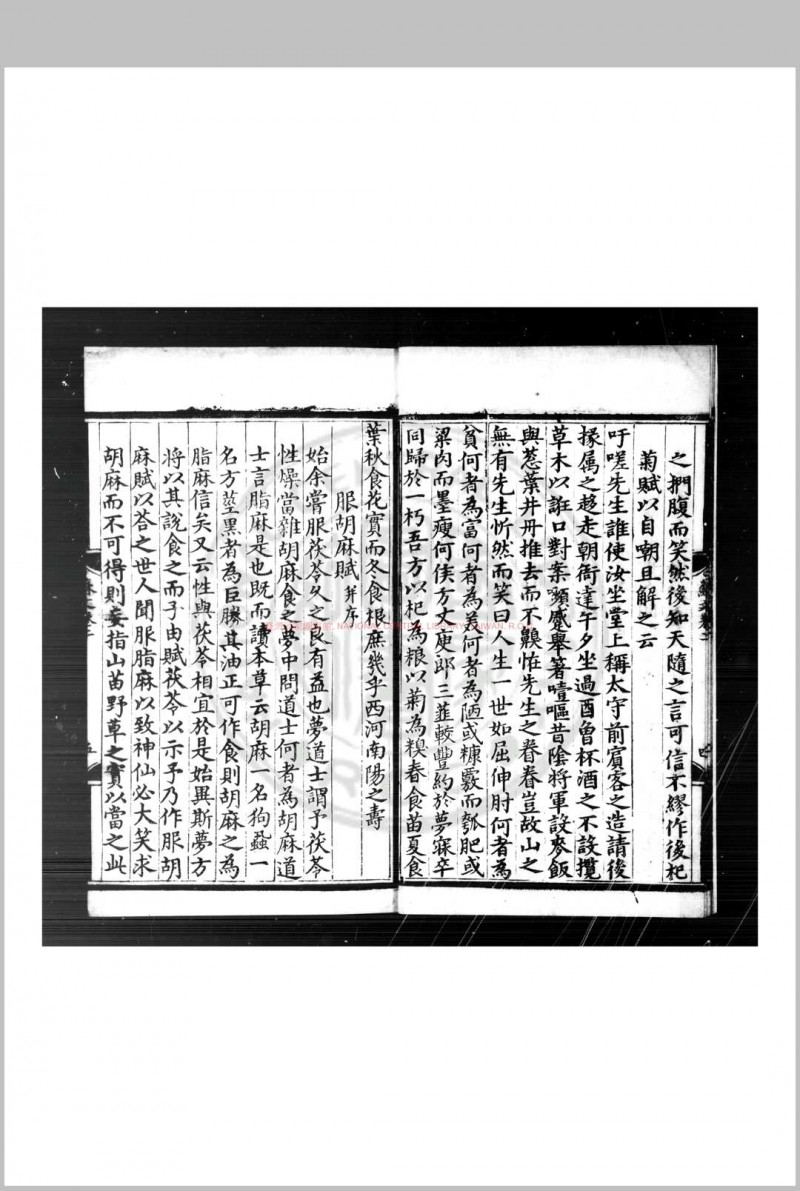 之捫腹而笑然後知天隨之言可信不繆作後杞
菊賦以自嘲且解之云
吁嗟先生誰使汝坐堂上稱太守前賓客之造請後
掾属之趍走朝衙達午夕坐過酉曾杯酒之不設攬
草木以誑口對案顰蹙舉箸噎嘔昔陰將軍設麥飯
與葱葉井丹推去而不齅恠先生之眷眷豈故山之
無有先生忻然而笑曰人生一世如屈伸肘何者為
貧何者為富何者為羙何者為陋或糠覈而瓠肥或
粱肉而墨瘦何侯方丈庾郎三韮較豐約於夢寐卒
同歸於一朽吾方以杞為粮以菊為糗春食苗夏食
葉秋食花實而冬食根庶幾乎西河南陽之壽
服胡麻賦 并序
始余嘗服茯苓久之良有益也夢道士謂予茯苓
性燥當雜胡麻食之夢中問道士何者為胡麻道
士言脂麻是也既而讀本草云胡麻一名狗蝨一
名方莖黑者為巨勝其油正可作食則胡麻之為
脂麻信矣又云性與茯苓相宜於是始異斯夢方
將以其說食之而子由賦茯苓以示予乃作服胡
麻賦以荅之世人聞服脂麻以致神仙必大笑求
胡麻而不可得則妄指山苗野草之實以當之此
五